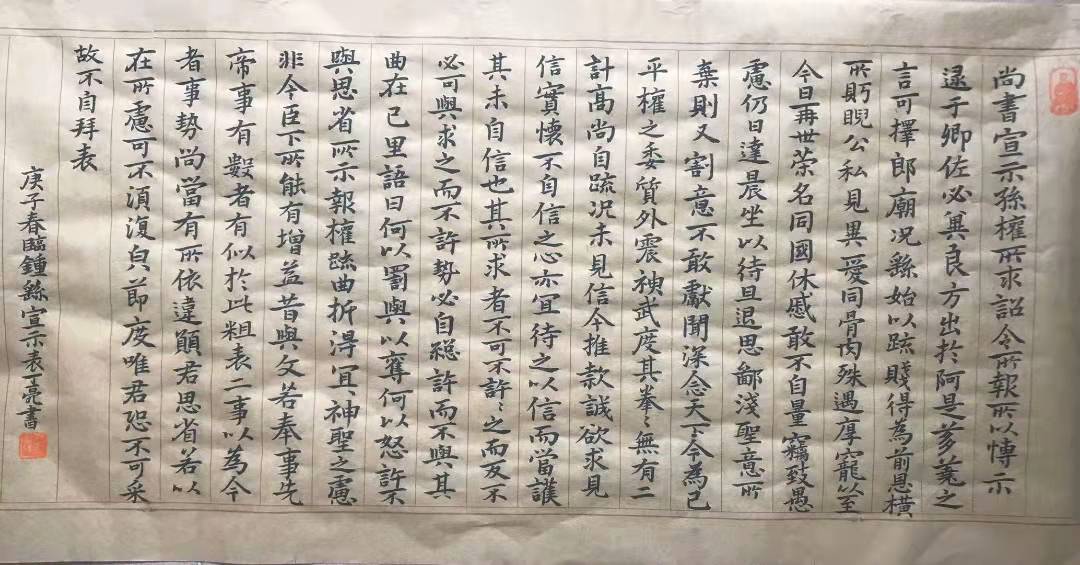 尚書宣示孫權所求詔令所報所以博示
逮于卿佐必冀良方出於阿是芻蕘之
言可擇郎廟況繇始以疏賤得為前恩橫
所眄睨公私見異愛同骨肉殊遇厚寵以至
今日再世榮名同國休慼敢不自量竊致愚
慮仍日達晨坐以待旦退思鄙淺聖意所
棄則又割意不敢獻聞深念天下今為已
平權之委質外震神武度其拳〻無有二
計高尚自疏況未見信今推款誠欲求見
信實懷不自信之心亦宜待之以信而當護
其未自信也其所求者不可不許〻之而反不
必可與求之而不許勢必自絕許而不與其
曲在己里語曰何以罰與以奪何以怒許不
與思省所示報權疏曲折得宜神聖之慮
非今臣下所能有增益昔與文若奉事先
帝事有數者有似於此粗表二事以為今
者事勢尚當有所依違願君思省若以
在所慮可不須復皃節度唯君恐不可采
故不自拜表
庚子春臨鍾繇宣示表亮書